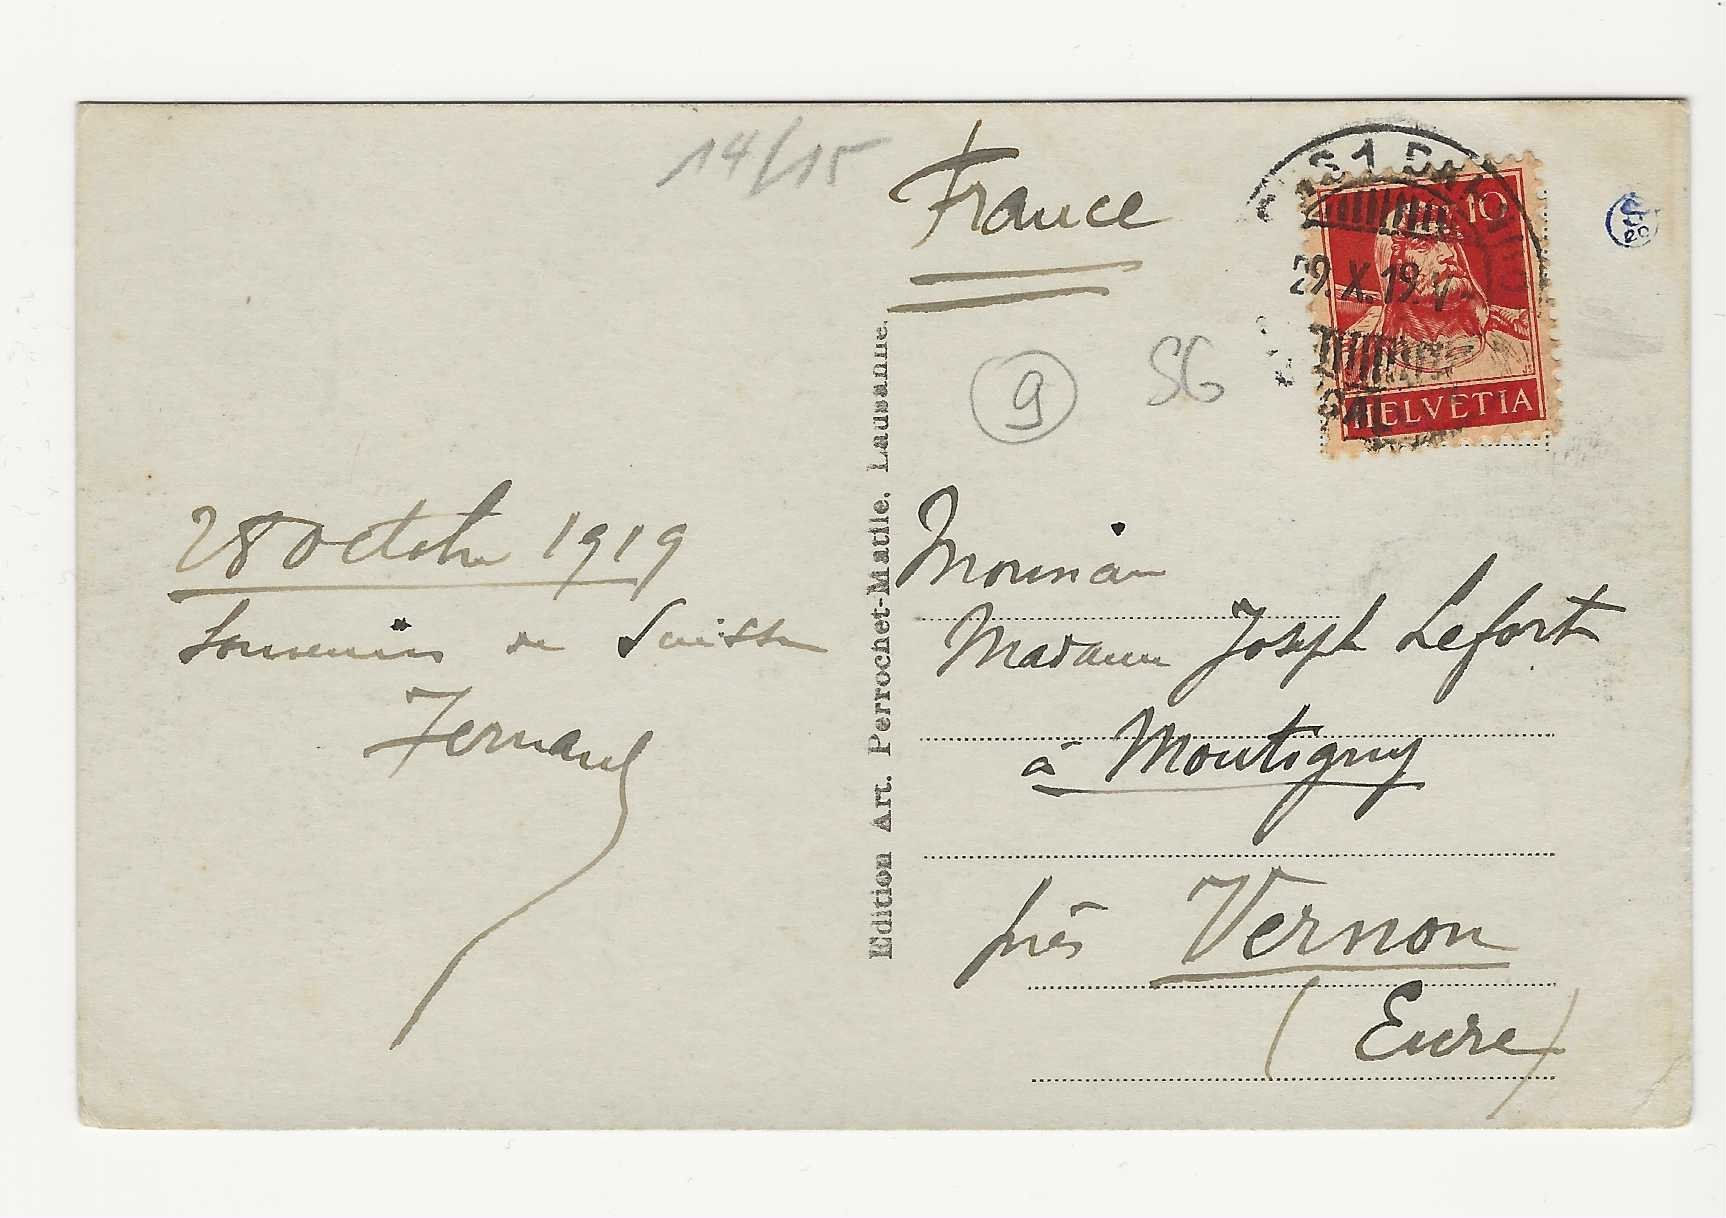 14/15
France
10
29.X.19.
HELVETIA
9
SG
28 octobre 1919
Souvenirs de Suisse
Fernand
Edition Art. Perrochet-Matile, Lausanne.
Monsieur
Madame Joseph Lefort
à Montigny
près Vernon
(Eure)